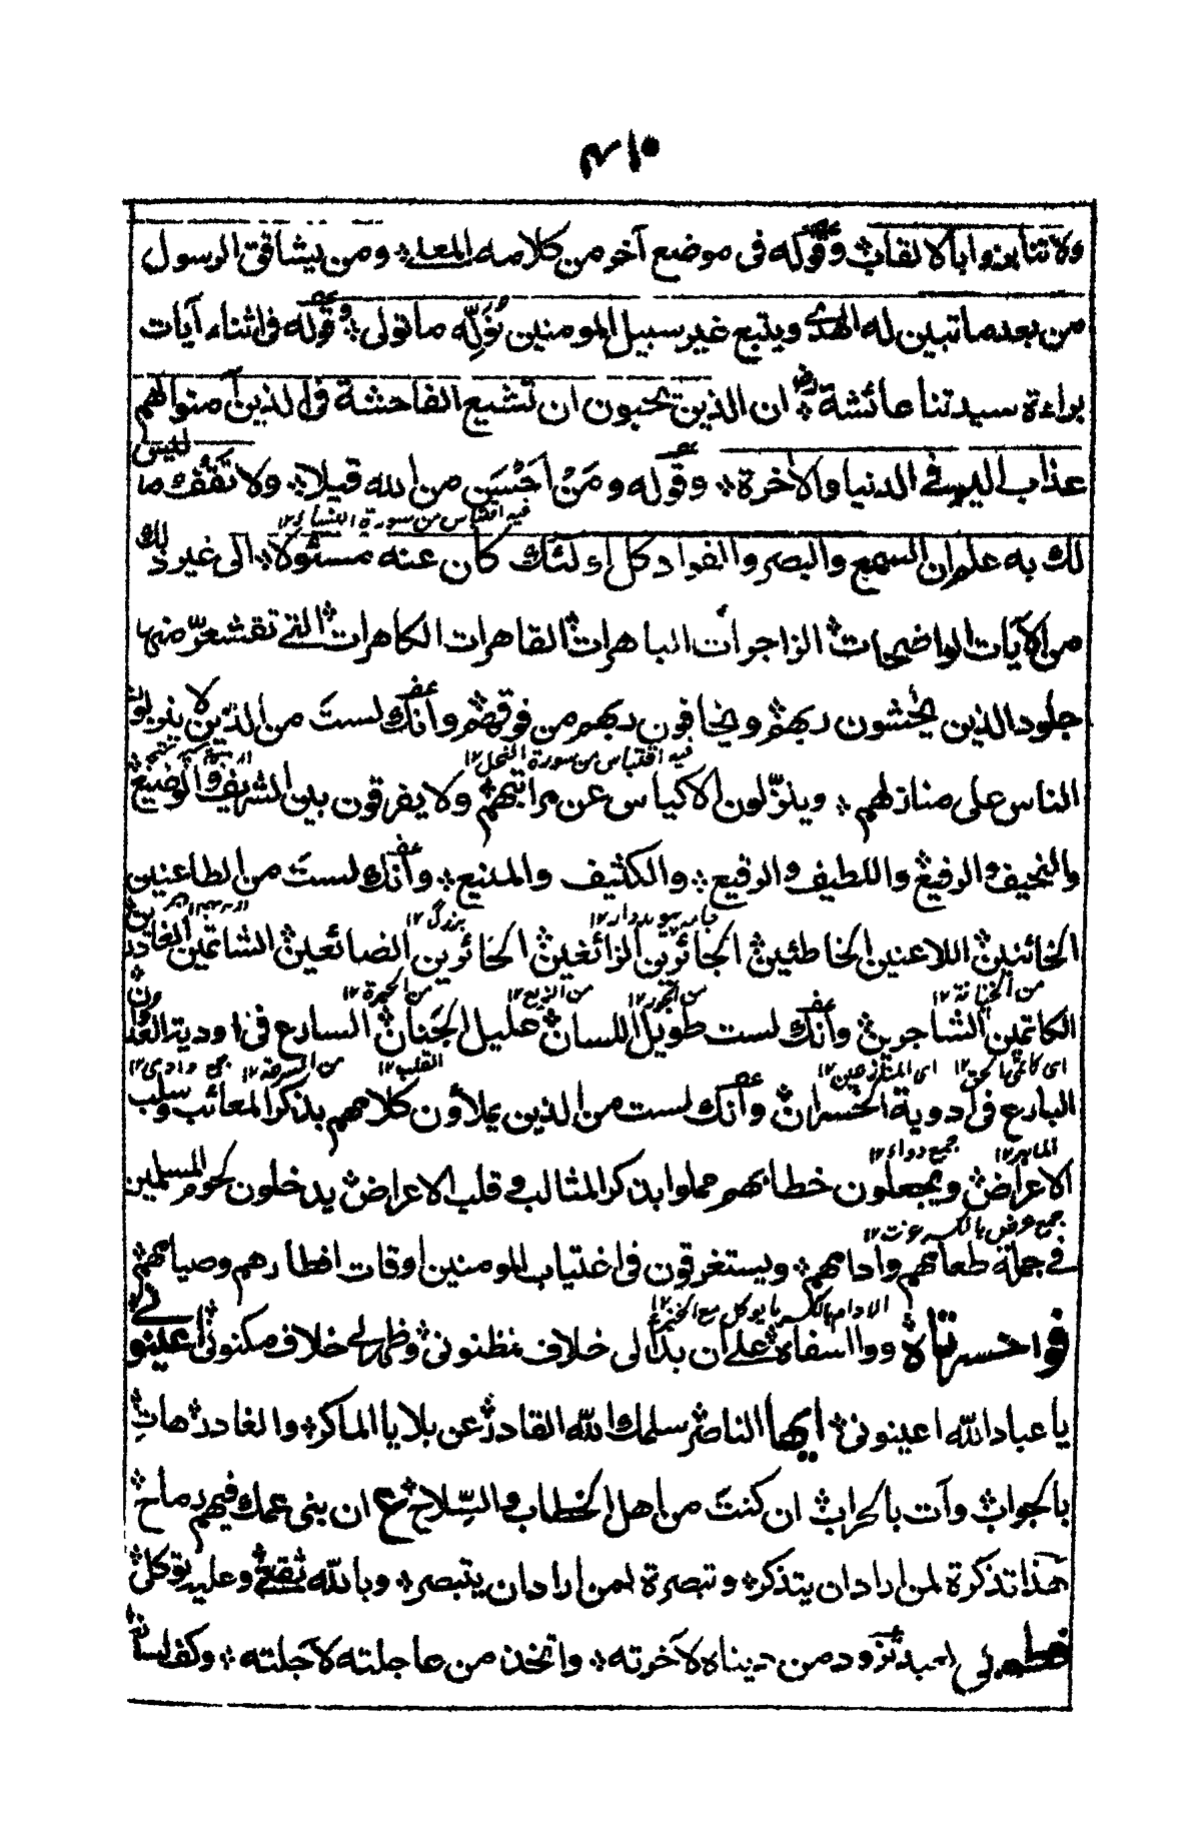 ولا تنابزوا بالالقاب وقوله فى موضع آخر من كلامه المعلى ومن يشاقق الرسول
من بعد ما تبين له الهدى ويتبع غير سبيل المومنين نُوَلِّه ما تولى وقوله فى اثناء آيات
براءة سيدتنا عائشة رض ان الذين يحبون ان تشيع الفاحشة فى الذين آمنوا لهم
عذاب اليم فى الدنيا والآخرة وقوله ومَنْ اَحْسَن من الله قيلا ولا تَقْفُ ما ليس
فيه اقتباس من سورة النساء ١٢
لك به علم ان السمع والبصر والفواد كل اولئك كان عنه مسئولا الى غير ذلك
من الآيات الواضحات الزاجرات الباهرات القاهرات الكاهرات التى تقشعرّ منها
جلود الذين يخشون ربهم ويخافون ربهم من فوقهم وانك لستَ من الذين لا ينزلون
فيه اقتباس من سورة النحل ١٢
الناس على منازلهم وينزّلون الاكياس عن مراتبهم ولا يفرقون بين الشريف والوضيع
والنحيف والرفيع واللطيف والرقيع والكثيف والمنيع وانك لستَ من الطاعنين
بزرگ ١٢
الخائنين اللاعنين الخاطئين الجائرين الزائغين الحائرين الضائعين الشاتمين الغادرين
من الخيانة ١٢ من الجور ١٢ من الزيغ ١٢ من الحيرة ١٢
الكاتمين الشاجرين وانك لست طويل اللسان عليل الجَنان السارع فى اودية العدوان
اى كاتمى الحق ١٢ اى المتنازعين ١٢ القلب ١٢ من السرعة ١٢ جمع وادى ١٢
البارع فى ادوية الخسران وانك لست من الذين يملأون كلامهم بذكر المعائب وسلب
الماهر ١٢ جمع دواء ١٢
الاعراض ويجعلون خطابهم مملوا بذكر المثالب وقلب الاعراض يدخلون لحوم المسلمين
جمع عرض بالكسر عزت ١٢
فى جملة طعامهم وادامهم ويستغرقون فى اغتياب المومنين اوقات افطارهم وصيامهم
الادام بالكسر ما يوكل مع الخبز ١٢
فواحسرتاه ووااسفاه على ان بدا لى خلاف مظنونى وظهر لى خلاف مكنونى اعينونى
يا عباد الله اعينونى ايها الناصر سلمك الله القادر عن بلايا الماكر والغادر هاتِ
بالجواب وآت بالحراب ان كنتَ من اهل الخطاب والسِّلاح ع ان بنى عمك فيهم رماح
هذا تذكرة لمن اراد ان يتذكر وتبصرة لمن اراد ان يتبصر وبالله ثقتى وعليه توكلى
فطوبى لعبد تزود من دنياه لآخرته واتخذ من عاجلته لآجلته وكف لسانه